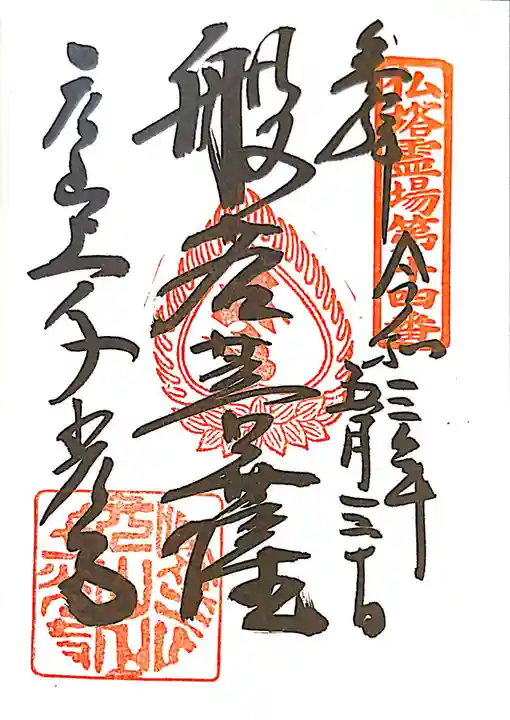 仏塔霊場第十四番
奉拝 令和三年
五月三十日
般若菩薩
元山上千光寺